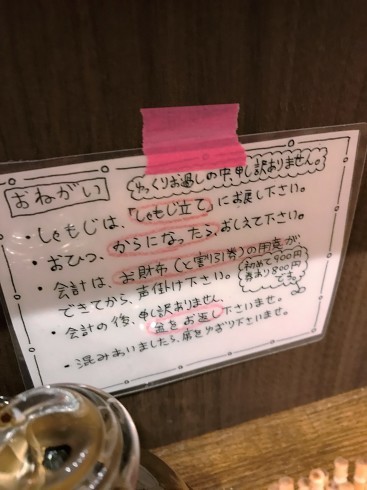 おねがい
ゆっくりお過しの中申し訳ありません。
・しゃもじは、「しゃもじ立て」にお戻し下さい。
・おひつ、からになったら、おしえて下さい。
・会計は、お財布(と割引券)の用意が
できてから、声掛け下さい。
初めて900円
券あり800円
です。
・会計の後、申し訳ありません、
金をお返し下さいませ。
・混みあいましたら、席をゆずり下さいませ。